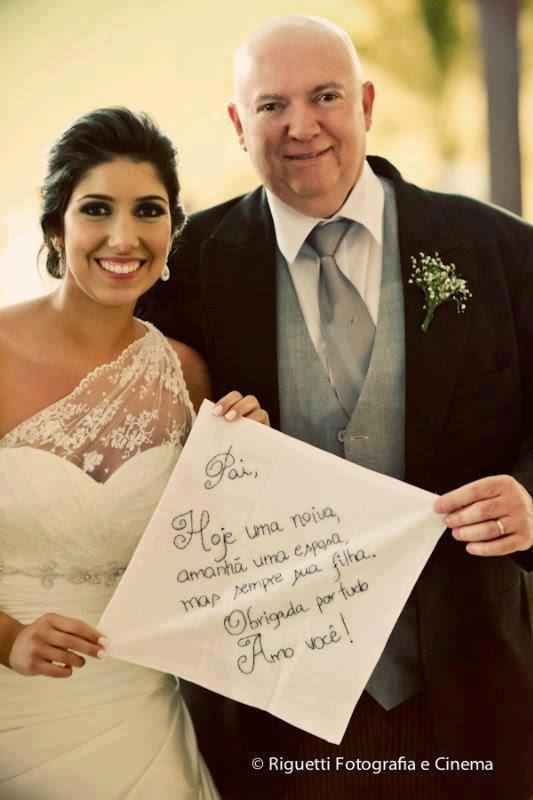 Pai,
Hoje uma noiva,
amanhã uma esposa,
mas sempre sua filha.
Obrigada por tudo
Amo você!
© Riguetti Fotografia e Cinema